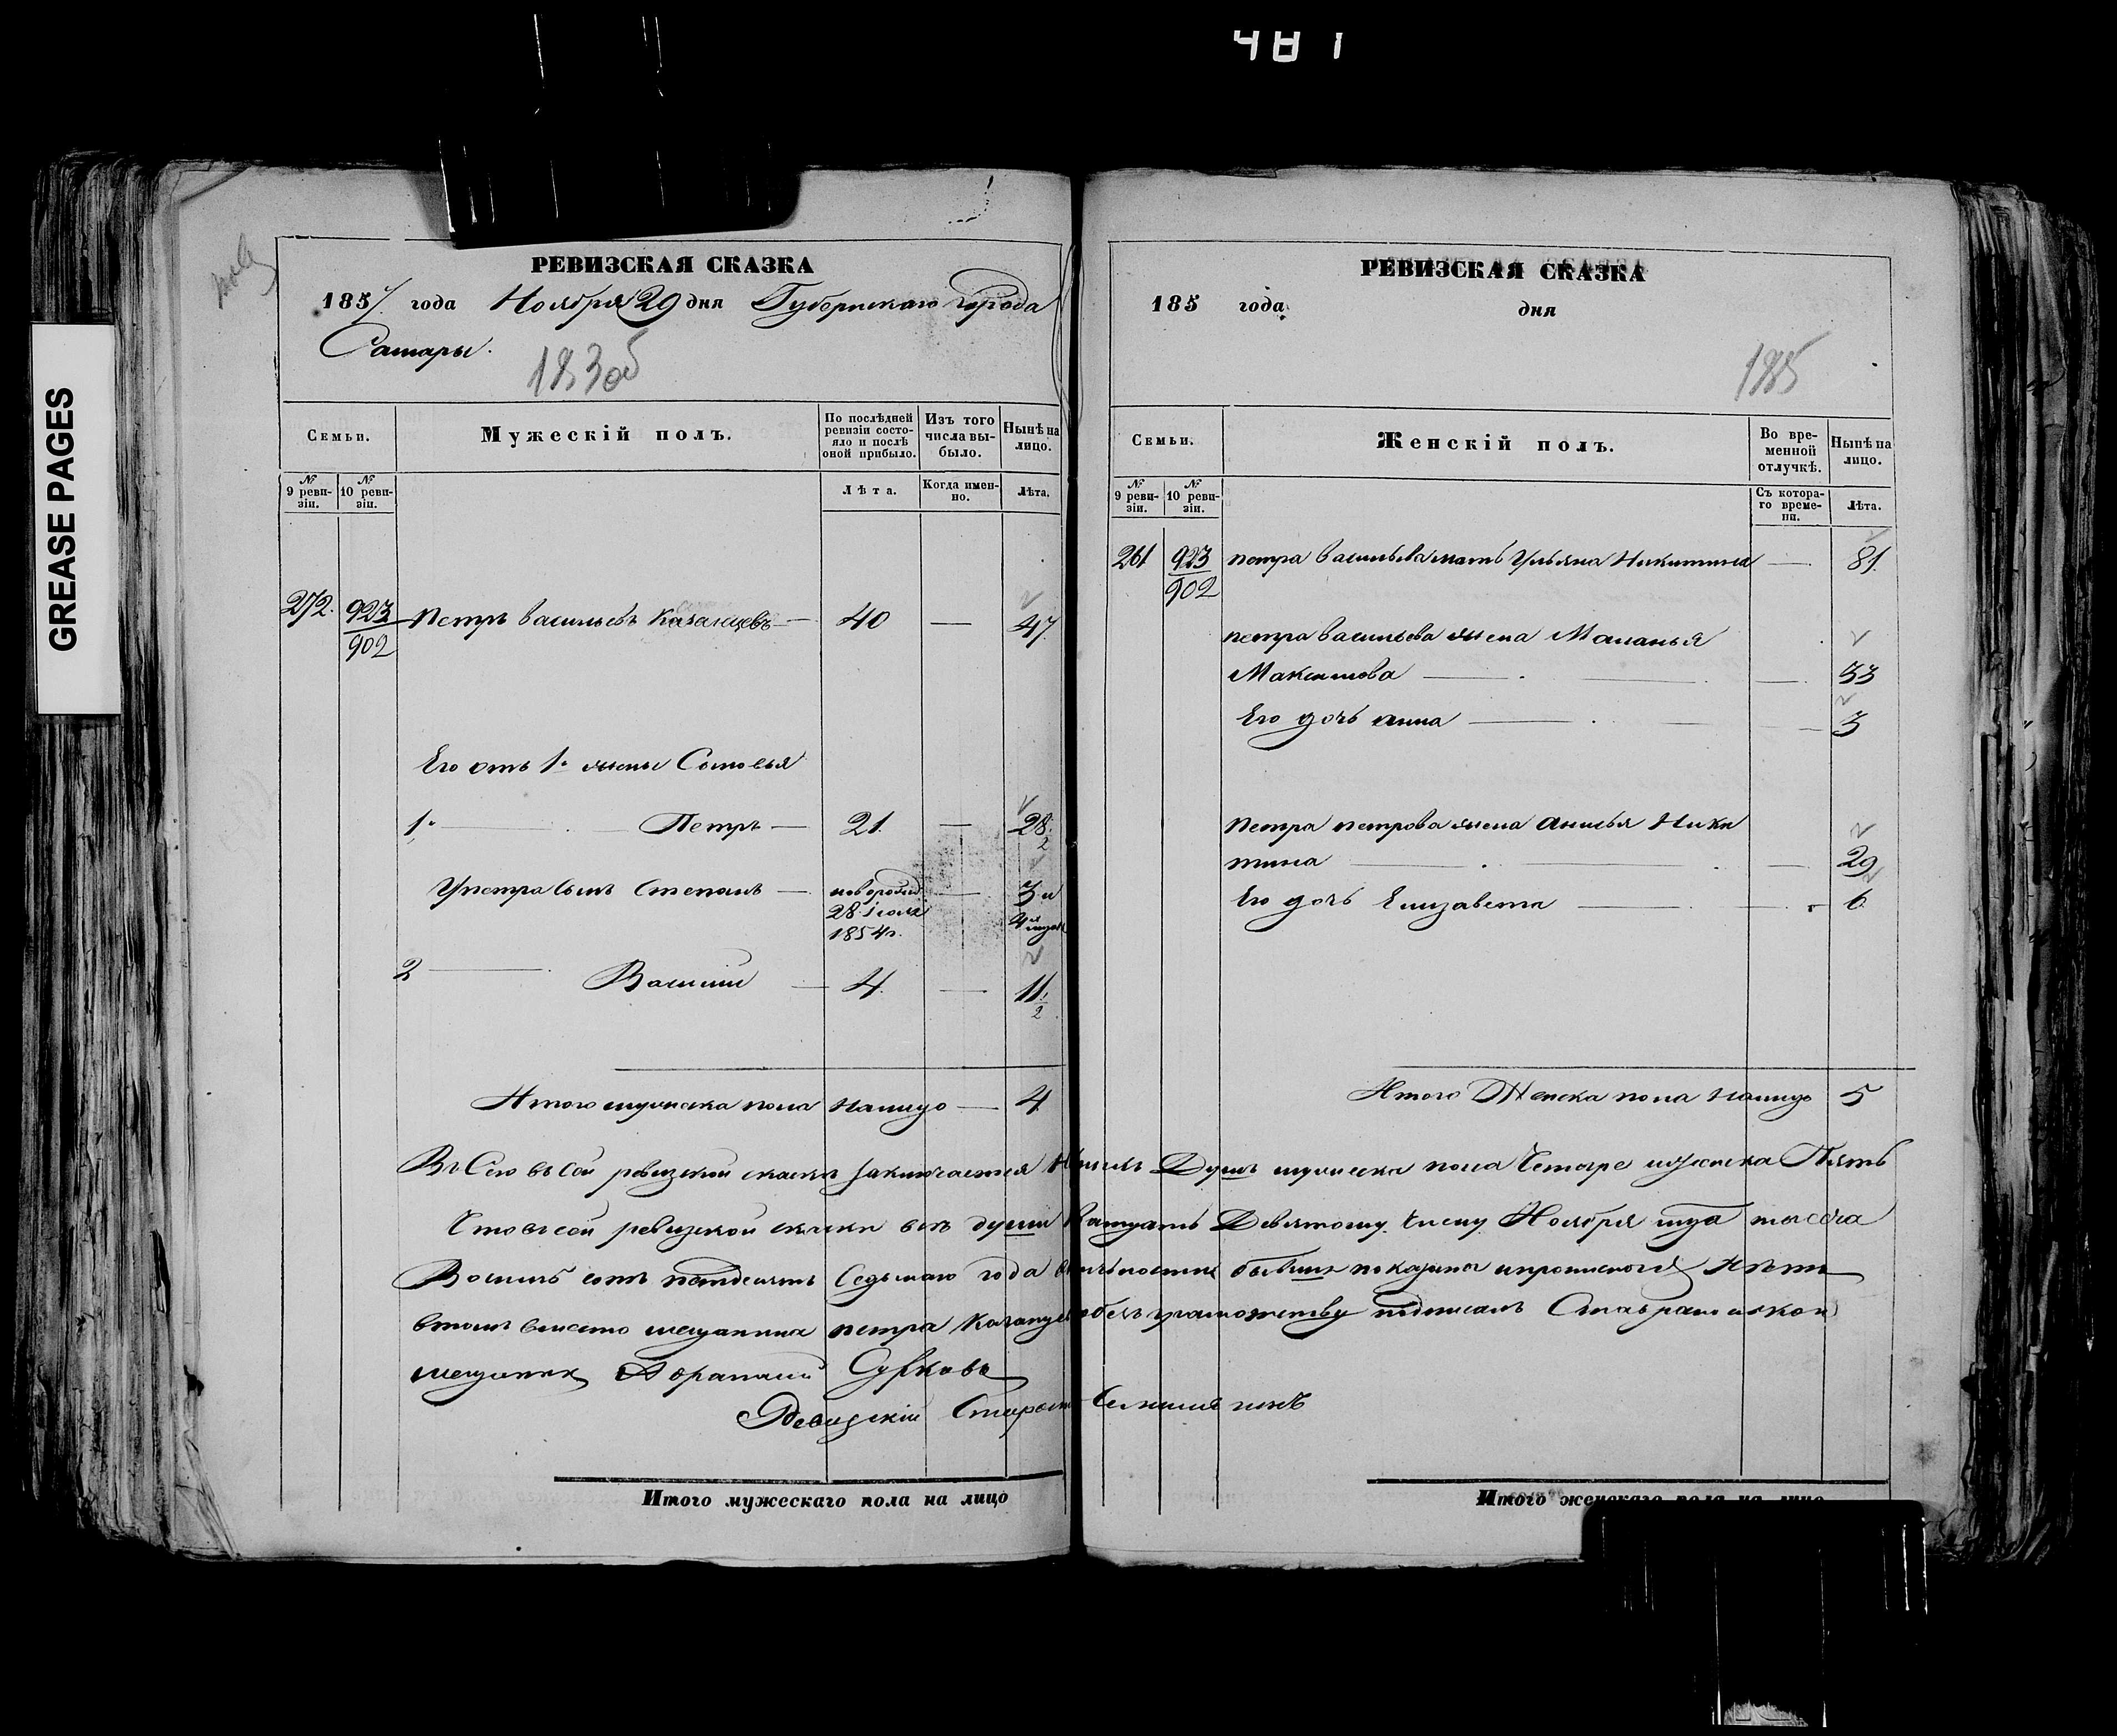 481
GREASE PAGES
РЕВИЗСКАЯ СКАЗКА
1857 года Ноября 29 дня Губернскаго города
Самары.
183об
Семьи.
Мужескій полъ.
По послѣдней ревизіи состояло и послѣ оной прибыло.
Изъ того числа выбыло.
Нынѣ на лицо.
№ 9 ревизіи.
№ 10 ревизіи.
Лѣта.
Когда именно.
Лѣта.
272. 923/902 Петръ Васильевъ — 40 — 47
Его отъ 1й жены Сыновья
1й — Петръ — 21. — 28 1/2
У петра сынъ Степанъ — новорожд — 3 и
28 іюля 4 мѣся
1854г.
2 — Василій — 4. — 11 1/2
Итого мужеска пола налицо — 4
РЕВИЗСКАЯ СКАЗКА
185 года дня
185
Семьи.
Женскій полъ.
Во временной отлучкѣ.
Нынѣ на лицо.
№ 9 ревизіи.
№ 10 ревизіи.
Съ котораго времени.
Лѣта.
261 923/902 петра васильева мать Ульяна Никитина — 81.
петра васильева жена Маланья
Максимова — 33
Его дочь анна — 3
Петра петрова жена Анисья Ники
тина — 29
Его дочь Елизавета — 6
Итого Женска пола налицо 5
сей ревизской сказкѣ заключается Душъ мужеска пола Четыре женска Пять
Что въ сей ревизской сказки всѣ души Девятому числу Ноября тысеча
Восимь сотъ петдесятъ Седьмаго года бывшія показаны Нѣтъ
втомъ вместо мещанина петра подписалъ
мещанинъ Сурковъ
Ревизскій
Итого мужескаго пола на лицо
Итого женскаго пола на лицо